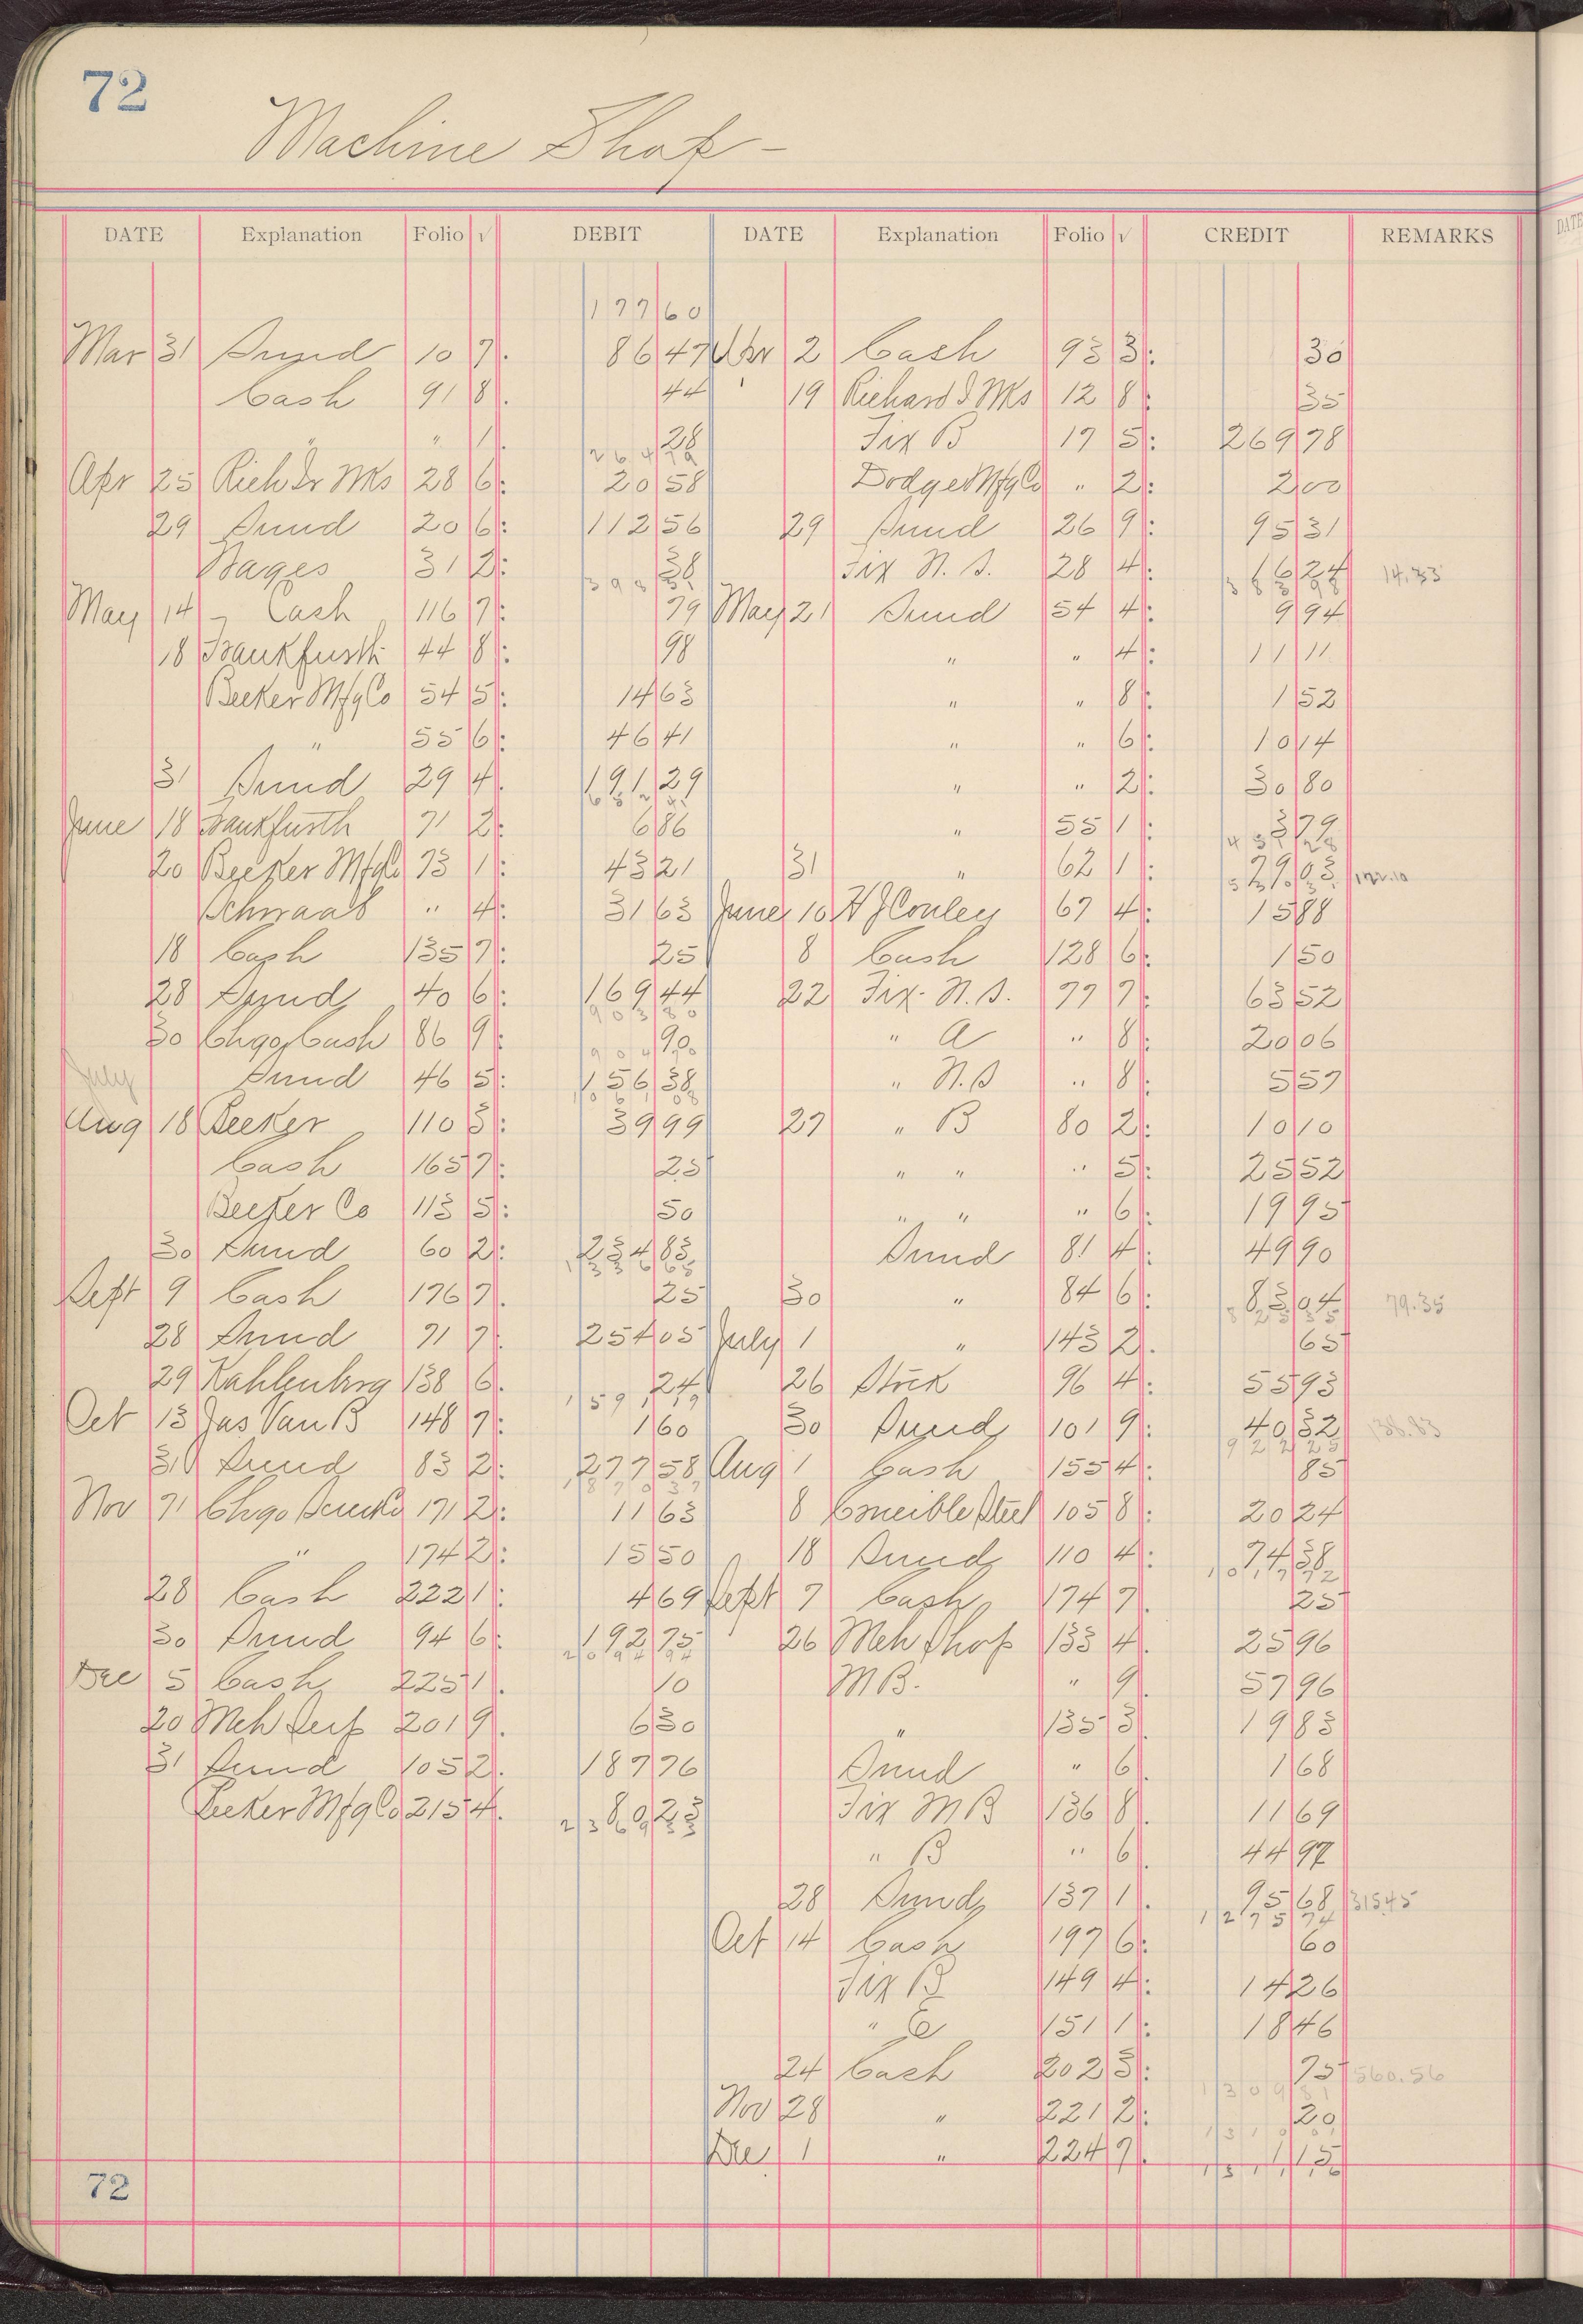 72
Machine Shop –
DATE Explanation Folio √ DEBIT DATE Explanation Folio √ CREDIT REMARKS
177 60
Mar 31 Sund 10 7. 86 47 Apr 2 Cash 93 3: 30
Cash 91 8. 44 19 Richard I Wks 12 8: 35
" " 1. 28 Fix B 17 5: 269 78
264 79
Apr 25 Rich Ir Wks 28 6: 20 58 Dodge Mfg Co " 2: 2 00
29 Sund 20 6: 112 56 29 Sund 26 9: 95 31
Wages 31 2: 38 Fix N.S. 28 4: 16 24 14.33
398 31 383 98
May 14 Cash 116 7: 79 May 21 Sund 54 4: 9 94
18 Frankfurth 44 8: 98 " " 4: 11 11
Becker Mfg Co 54 5: 14 63 " " 8: 1 52
" 55 6: 46 41 " " 6: 10 14
31 Sund 29 4. 191 29 " " 2: 30 80
652 41
June 18 Frankfurth 71 2: 6 86 " 55 1: 3 79
451 28
20 Becker Mfg Co 73 1: 43 21 31 " 62 1: 79 03 122.10
530 31
Schwaab " 4: 31 63 June 10 H J Conley 67 4: 15 88
18 Cash 135 7: 25 8 Cash 128 6: 1 50
28 Sund 40 6: 169 44 22 Fix N.S. 77 7: 63 52
903 80
30 Chgo Cash 86 9: 90 " A " 8: 20 06
904 70
July Sund 46 5: 156 38 " N.S " 8: 5 57
1061 08
Aug 18 Becker 110 3: 39 99 27 " B 80 2: 10 10
Cash 165 7: 25 " " " 5: 25 52
Becker Co 113 5: 50 " " " 6: 19 95
30 Sund 60 2: 234 83 Sund 81 4: 49 90
1336 65
Sept 9 Cash 176 7. 25 30 " 84 6: 83 04 79.35
825 35
28 Sund 71 7: 254 05 July 1 " 143 2. 65
29 Kahlenbrg 138 6. 24 26 Stock 96 4: 55 93
1591 19
Oct 13 Jas Van B 148 7: 1 60 30 Sund 101 9: 40 32 138.83
922 25
31 Sund 83 2: 277 58 Aug 1 Cash 155 4: 85
1870 37
Nov 71 Chgo Screw Co 171 2: 11 63 8 Crucible Steel 105 8: 20 24
" 174 2: 15 50 18 Sund 110 4: 74 38
1017 72
28 Cash 222 1: 4 69 Sept 7 Cash 174 7. 25
30 Sund 94 6: 192 75 26 Mch Shop 133 4. 25 96
2094 94
Dec 5 Cash 225 1. 10 MB. " 9. 57 96
20 Mch Sup 201 9. 6 30 " 135 3. 19 83
31 Sund 105 2. 187 76 Sund " 6. 1 68
Becker Mfg Co 215 4. 80 23 Fix MB 136 8. 11 69
2369 33
" B " 6. 44 97
28 Sund 137 1. 95 68 315.45
1275 74
Oct 14 Cash 197 6: 60
Fix B 149 4: 14 26
" E 151 1: 18 46
24 Cash 202 3: 75 560.56
1309 81
Nov 28 " 221 2: 20
1310 01
Dec 1 " 224 7. 1 15
1311 16
72